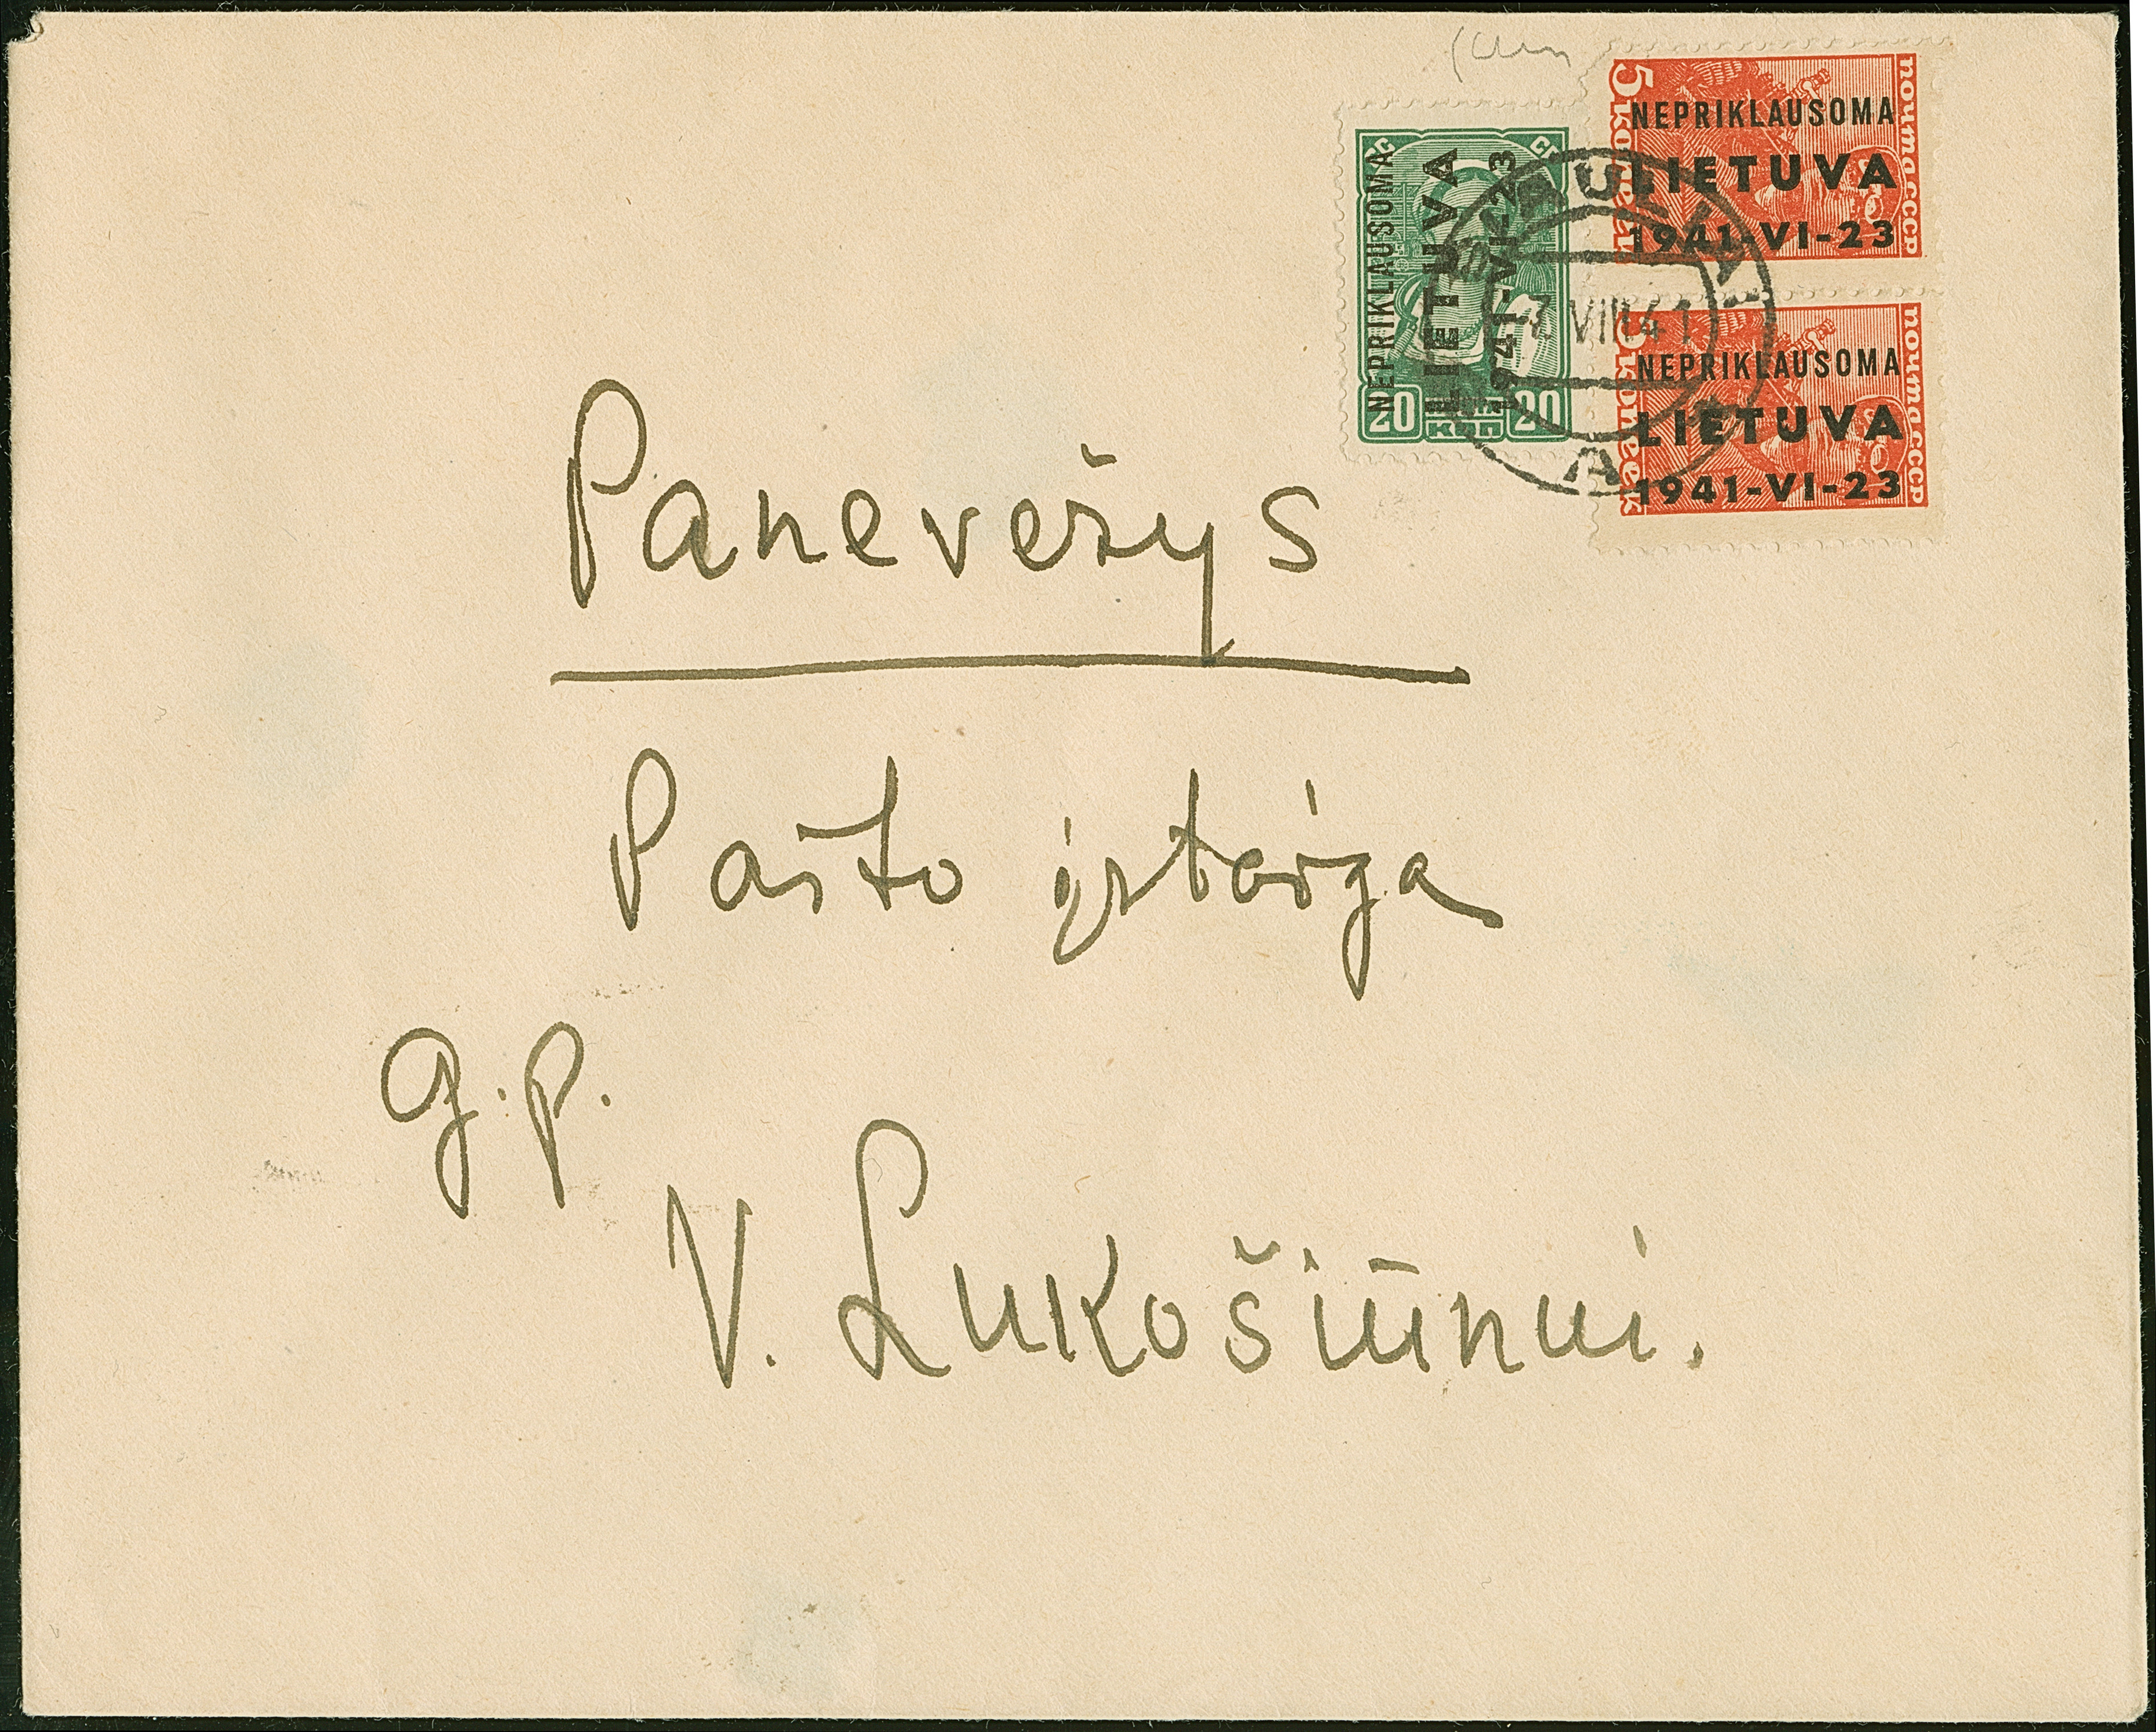 NEPRIKLAUSOMA
LIETUVA
1941-VI-23
5 копеек
почта СССР
NEPRIKLAUSOMA
LIETUVA
1941-VI-23
20 20
коп
NEPRIKLAUSOMA
LIETUVA
1941-VI-23
5 копеек
почта СССР
VIII 41
A
Panevežys
Pašto įstaiga
g. p.
V. Lukošiūnui.